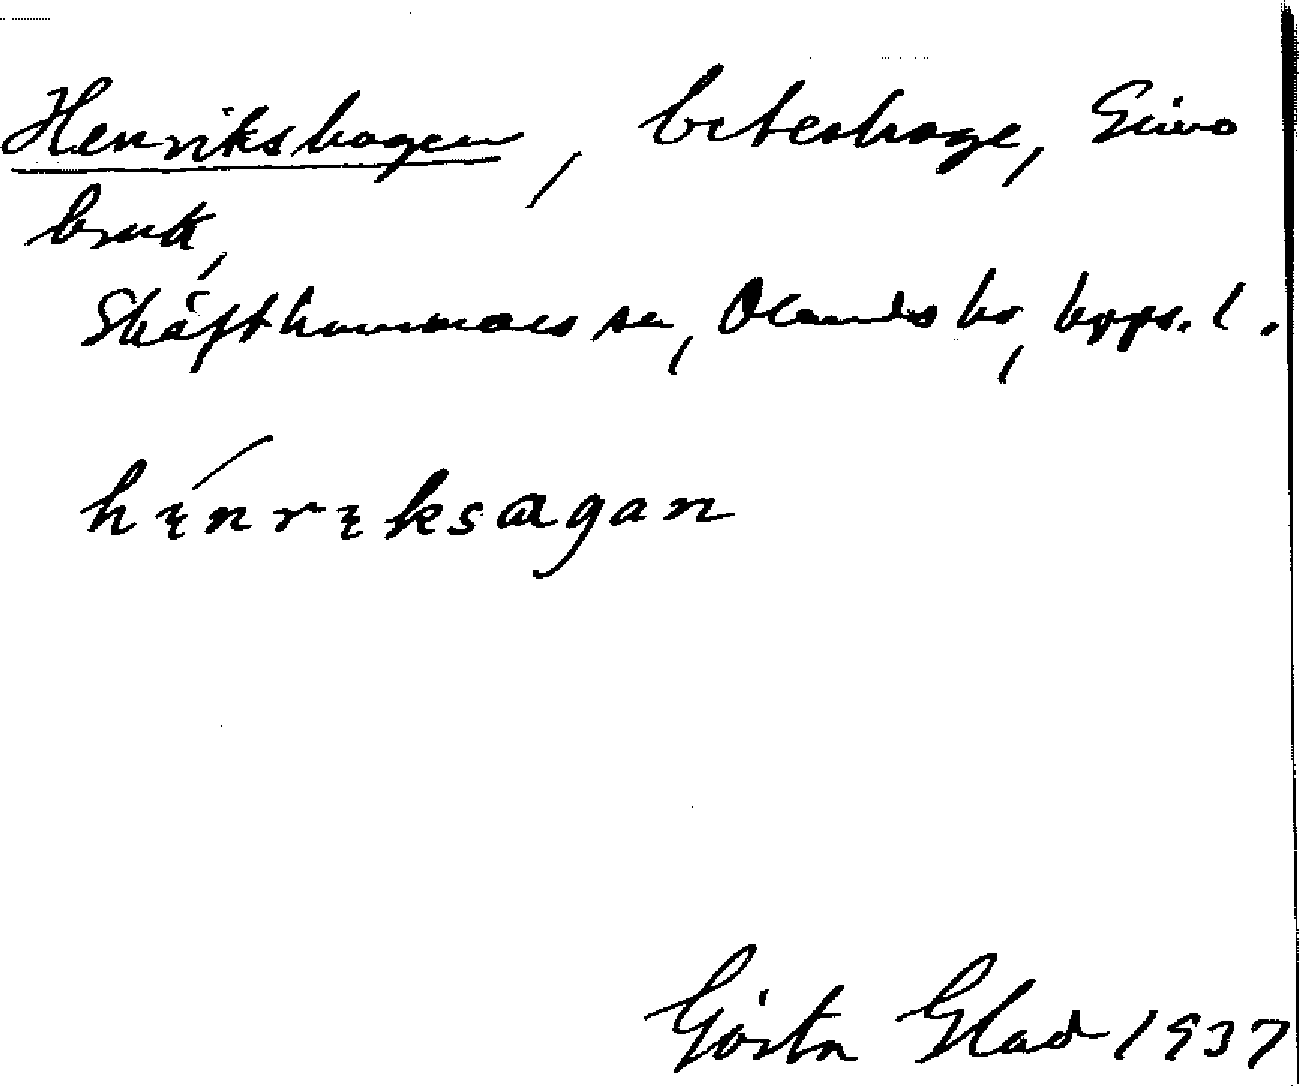 Henrikshagen, beteshage, Gimo
bruk,
Skäfthammars sn, Olands hd, Upps. l.
hinriksagan
Gösta Glad 1937